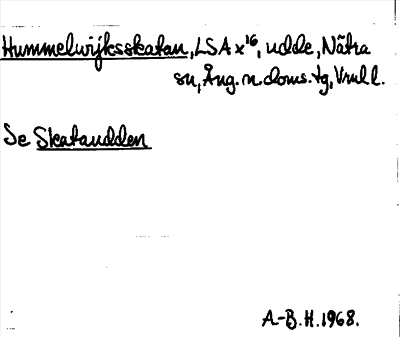 Hummelwijksskatan, LSA x¹⁶, udde, Nätra
sn, Ång. n. doms. tg, Vnl l.
Se Skataudden
A-B.H. 1968.